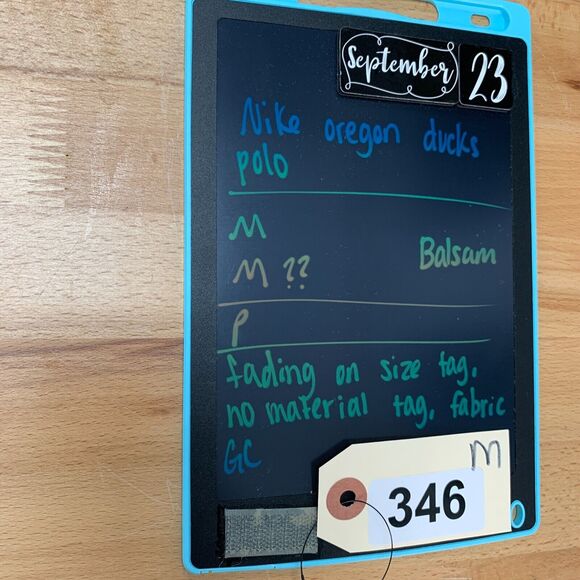 September 23
Nike oregon ducks
polo
M
M ?? Balsam
P
fading on size tag,
no material tag, fabric
GC
M
346